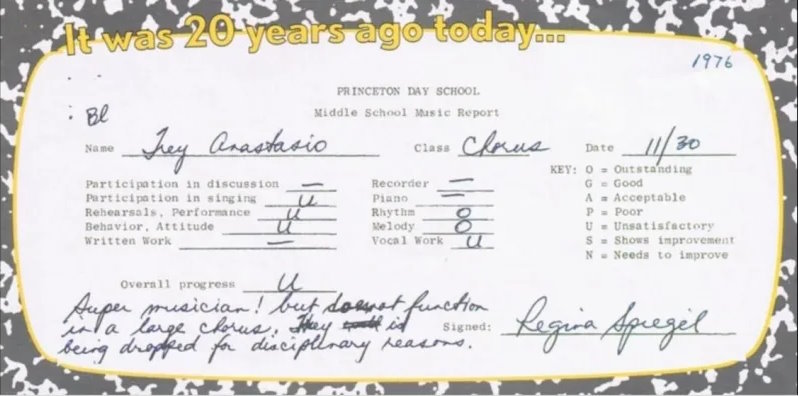 It was 20 years ago today...
1976
PRINCETON DAY SCHOOL
Middle School Music Report
Bl
Name Trey Anastasio Class Chorus Date 11/30
Participation in discussion —
Participation in singing U
Rehearsals, Performance U
Behavior, Attitude U
Written Work —
Recorder —
Piano —
Rhythm O
Melody O
Vocal Work U
KEY: O = Outstanding
G = Good
A = Acceptable
P = Poor
U = Unsatisfactory
S = Shows improvement
N = Needs to improve
Overall progress U
Super musician! but does not function
in a large chorus. Trey is
being dropped for disciplinary reasons.
Signed: Regina Spiegel